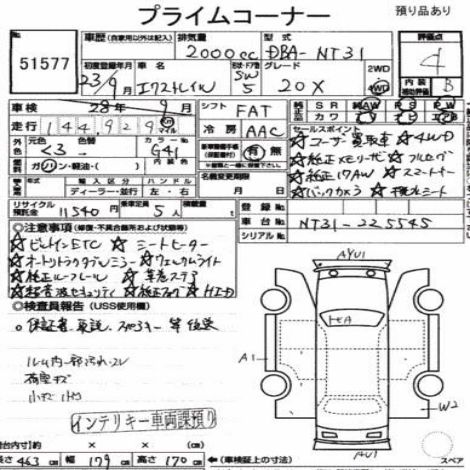 プライムコーナー 預り品あり
51577
車歴(自家用以外は記入) 排気量 型式 評価点
2000cc DBA-NT31 4
初度登録年月 車名 ドア 形状 グレード 2WD
23/9 エクストレイル SW 5 20X 4WD 内装 補助評価 B
車検 28年 9月 シフト FAT SR AW PS PW
走行 144,929 マイル 冷房 AAC カワ
元色 色替 カラーNo. セールスポイント
くろ G41 有・無
☆ユーザー買取車☆4WD
燃料 ガソリン・軽油・( ) ☆純正メモリーナビ☆フルセグ
年式 輸入区分 ハンドル 名義変更期限 ☆純正17AW☆スマートキー
ディーラー・並行 左・右 年 月 日 ☆バックカメラ☆撥水シート
リサイクル預託金 11540円 乗車定員 5人 積載量 t 登録No.
車台No. NT31-225545
シリアルNo.
◎注意事項(修復・不具合箇所および状態)
☆ビルトインETC ☆シートヒーター
☆オートリトラクタブルミラー☆ウェルカムライト
☆純正ルーフレール ☆革巻ステア
☆超音波セキュリティ ☆純正フォグ☆HID
◎検査員報告(USS使用欄)
保証書、取説、スペアキー 等後送
ルーム内一部汚れ・スレ
荷室キズ
小キズ 凹
インテリキー車両課預り
AYU1
A1
W2
AU1
荷台内寸 × × ◎車検証上の寸法 スペア
長さ 463cm 幅 179cm 高さ 170cm